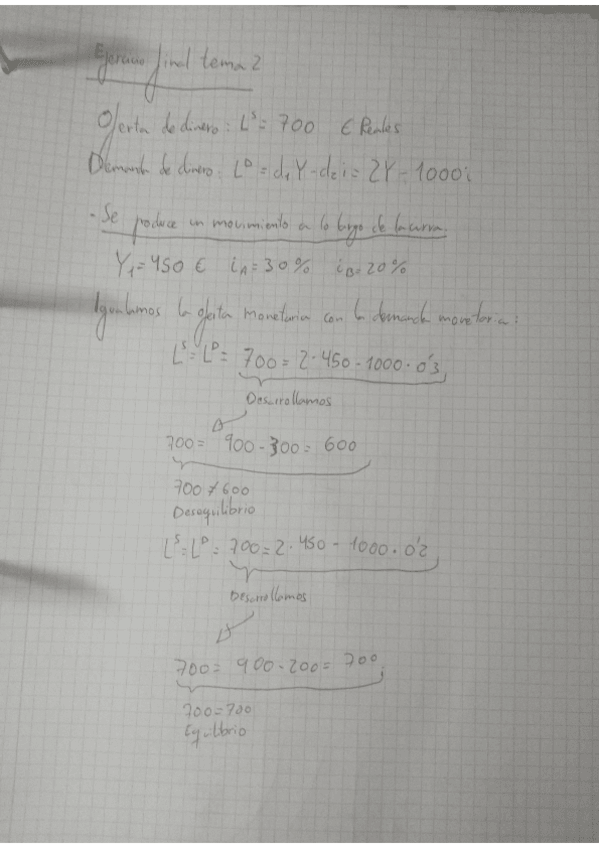 Ejercicio final tema 2
Oferta de dinero: Lˢ = 700 € Reales
Demanda de dinero: Lᴰ = d₁Y - d₂i = 2Y - 1000i
- Se produce un movimiento a lo largo de la curva.
Y₁ = 450 € iA = 30% iB = 20%
Igualamos la oferta monetaria con la demanda monetaria:
Lˢ = Lᴰ = 700 = 2·450 - 1000·0'3
Desarrollamos
700 = 900 - 300 = 600
700 ≠ 600
Desequilibrio
Lˢ = Lᴰ = 700 = 2·450 - 1000·0'2
Desarrollamos
700 = 900 - 200 = 700
700 = 700
Equilibrio